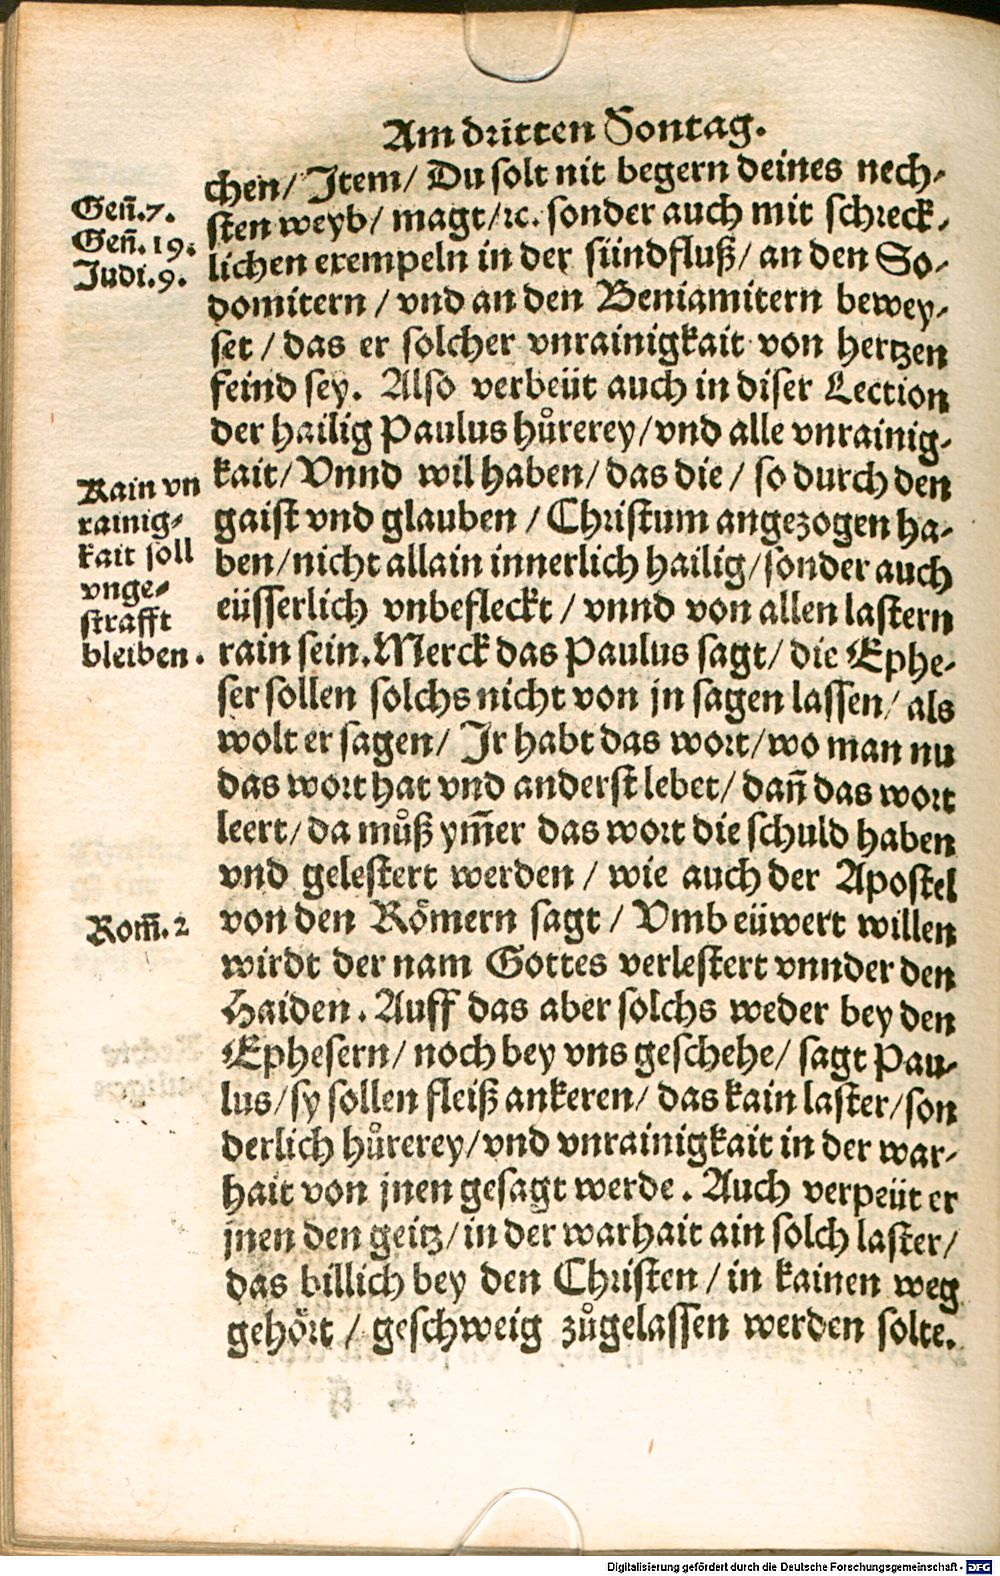 Am dritten Sontag.
chen/ Item/ Du solt nit begern deines nech-
Geñ.7.
sten weyb/ magt/ꝛc. sonder auch mit schreck-
Geñ.19.
lichen exempeln in der sündfluß/ an den So-
Judi.9.
domitern / vnd an den Beniamitern bewey-
set / das er solcher vnrainigkait von hertzen
feind sey. Also verbeüt auch in diser Lection
der hailig Paulus hůrerey/vnd alle vnrainig-
kait/ Vnnd wil haben/ das die / so durch den
Kain vn
rainig-
kait soll
vnge-
strafft
bleiben.
gaist vnd glauben / Christum angezogen ha-
ben/nicht allain innerlich hailig/sonder auch
eüsserlich vnbefleckt / vnnd von allen lastern
rain sein. Merck das Paulus sagt/ die Ephe-
ser sollen solchs nicht von jn sagen lassen/ als
wolt er sagen/ Ir habt das wort/wo man nu
das wort hat vnd anderst lebet/ dañ das wort
leert/ da můß ym̃er das wort die schuld haben
vnd gelestert werden / wie auch der Apostel
Rom̃.2
von den Römern sagt / Vmb eüwert willen
wirdt der nam Gottes verlestert vnnder den
Haiden. Auff das aber solchs weder bey den
Ephesern/ noch bey vns geschehe/ sagt Pau-
lus/sy sollen fleiß ankeren/ das kain laster/son
derlich hůrerey/vnd vnrainigkait in der war-
hait von jnen gesagt werde. Auch verpeüt er
jnen den geitz/in der warhait ain solch laster/
das billich bey den Christen / in kainen weg
gehört / geschweig zůgelassen werden solte.
Digitalisierung gefördert durch die Deutsche Forschungsgemeinschaft - DFG